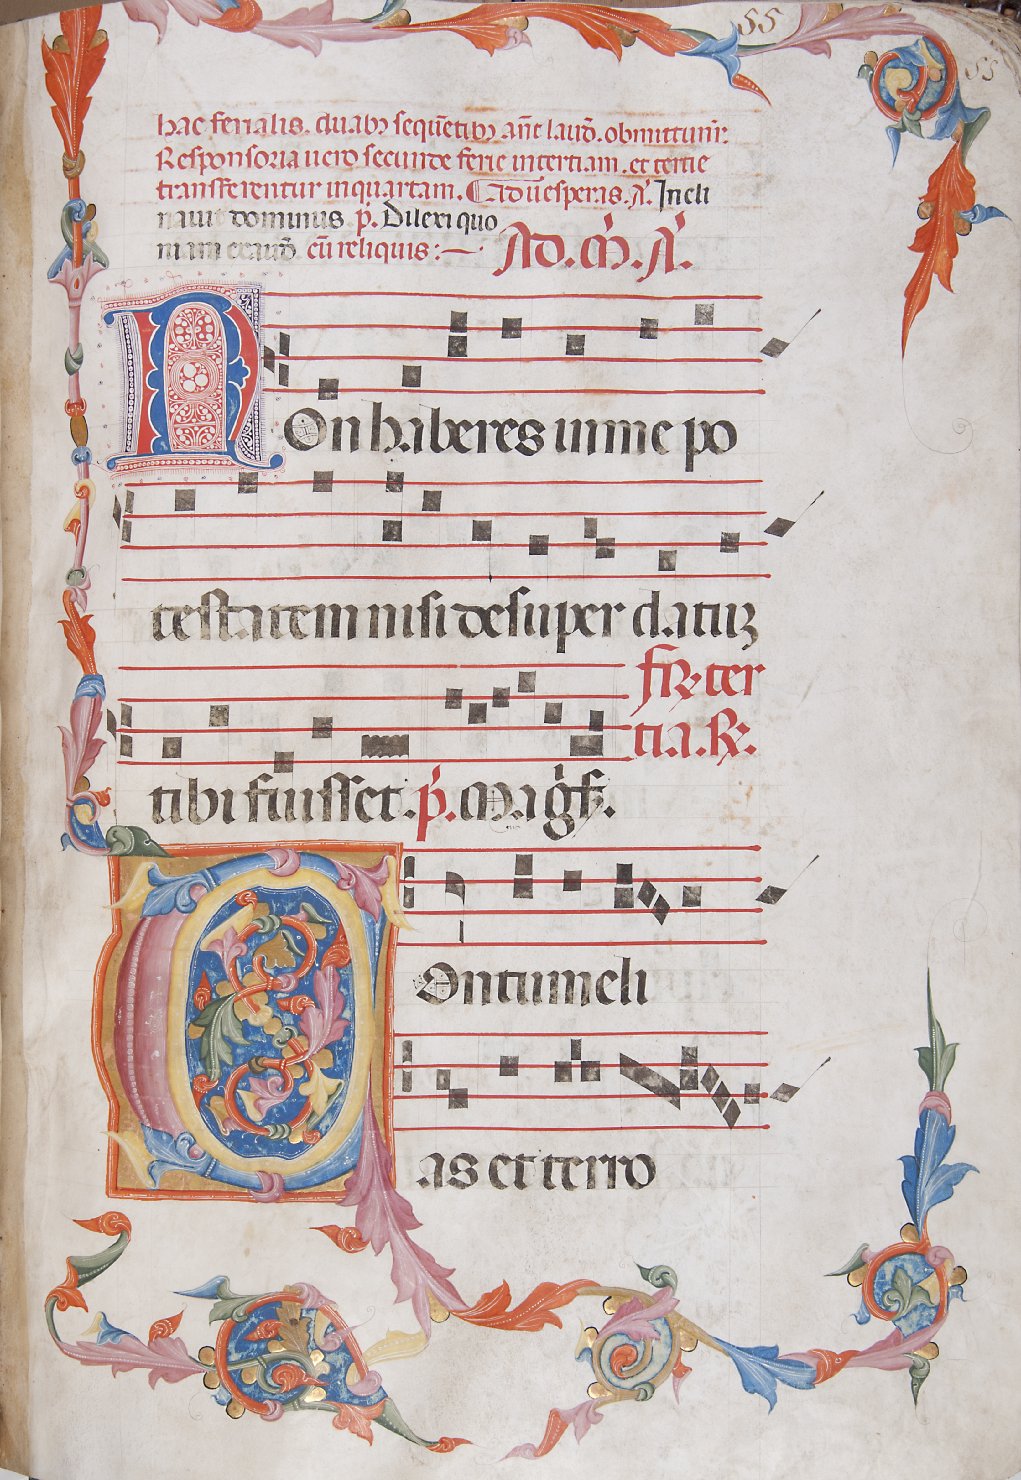 55
55
hac ferialis. duabꝫ sequētibꝫ añt laud̄. obmittunt᷑:
Responsoria uero secunde ferie intertiam. et tertie
transferentur inquartam. ¶ Ad ūesperas. A᷑. Incli
nauit dominus. p̄. Dilexi quo
niam exaud̄. cū reliquis :— Ad. M̄. A᷑.
Non haberes in me po
testatem nisi desuper datuꝫ
tibi fuisset. p̄. Magf̄. fr̄. ter
tia. ℟.
Contumeli
as et terro